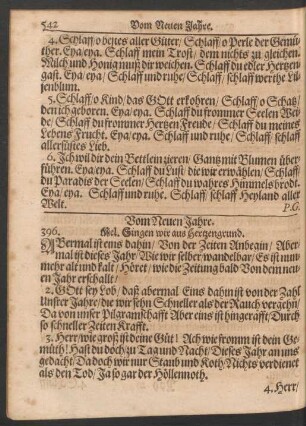 542 Vom Neuen Jahre.
4. Schlaff / o bestes aller Güter / Schlaff / o Perle der Gemü-
ther. Eya / eya. Schlaff mein Trost / dem nichts zu gleichen.
Milch und Honig muß dir weichen. Schlaff du edler Hertzen-
gast. Eya / eya / Schlaff und ruhe / Schlaff / schlaff werthe Li-
ljenblum.
5. Schlaff / o Kind / das GOtt erkohren / Schlaff / o Schatz /
den ich geboren. Eya / eya. Schlaff du frommer Seelen Wei-
de / Schlaff du frommer Hertzen Freude / Schlaff du meines
Lebens Frucht. Eya / eya. Schlaff und ruhe / Schlaff / schlaff
allersüßtes Lieb.
6. Ich wil dir dein Bettlein zieren / Gantz mit Blumen über-
führen. Eya / eya. Schlaff du Lust / die wir erwählen / Schlaff /
du Paradis der Seelen / Schlaff du wahres Himmelsbrodt.
Eya / eya. Schlaff und ruhe. Schlaff / schlaff Heyland aller
Welt. P. G.
Vom Neuen Jahre.
396. Mel. Gingen wir aus Hertzengrund.
ABermal ist eins dahin / Von der Zeiten Anbegin / Aber-
mal ist dieses Jahr / Wie wir selber wandelbar / Es ist nun
mehr alt und kalt / Höret / wie die Zeitung bald Von dem neu-
en Jahr erschallt /
2. Gott sey Lob / daß abermal Eins dahin ist von der Zahl
Unsrer Jahre / die wir sehn Schneller als der Rauch vergehn.
Da von unser Pilgramschafft Aber eins ist hingerafft / Durch
so schneller Zeiten Krafft.
3. Herr / wie groß ist deine Güt! Ach wie fromm ist dein Ge-
müth! Hast du doch zu Tag und Nacht / Dieses Jahr an uns
gedacht / Da doch wir nur Staub und Koth / Nichts verdienet
als den Tod / Ja so gar der Höllennoth.
4. Herr /